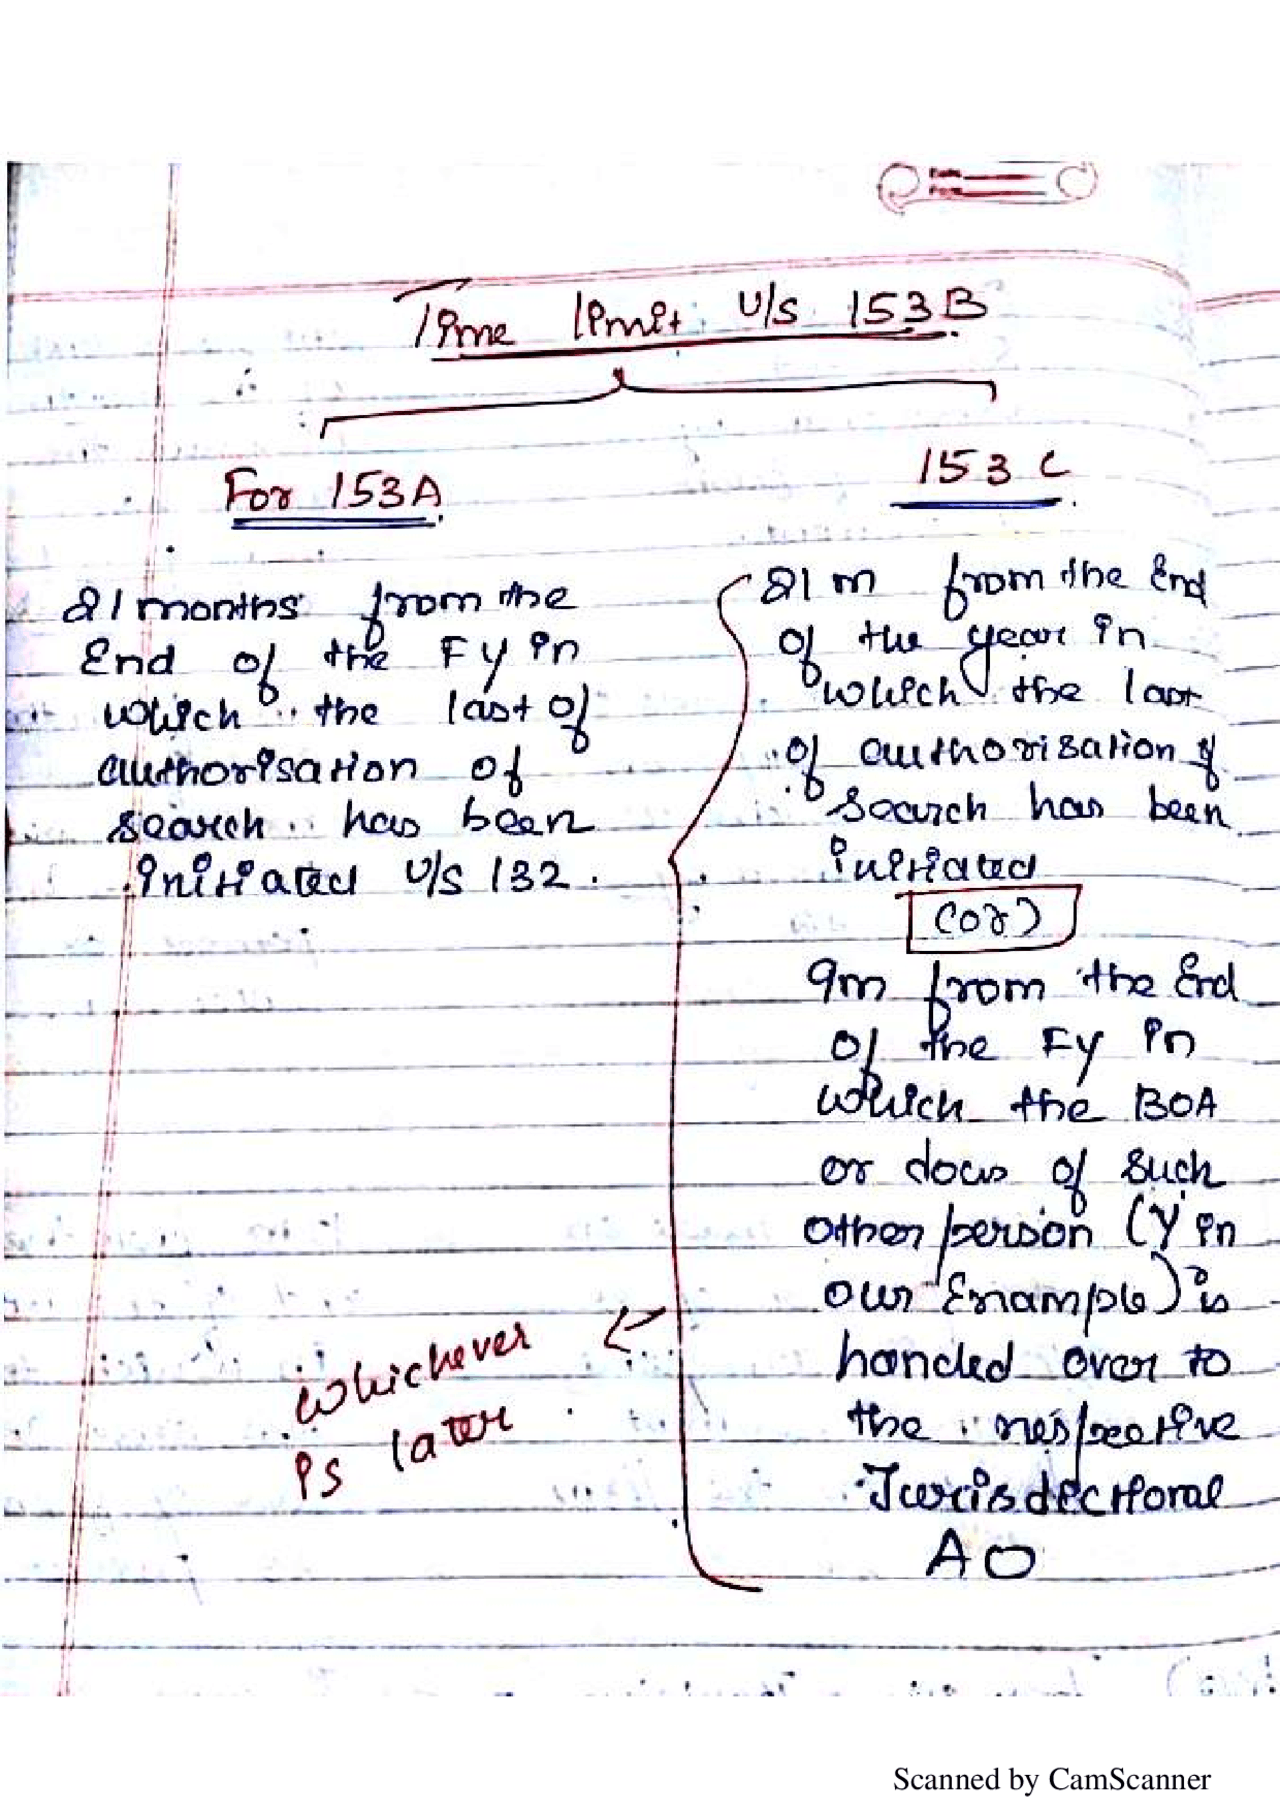 Time limit U/s 153B
For 153A
21 months from the
End of the FY in
which the last of
authorisation of
search has been
initiated U/s 132.
153 C
21 m from the End
of the year in
which the last
of authorisation of
search has been
initiated
(or)
9m from the End
of the FY in
which the BOA
or docs of such
other person (Y in
our Example) is
handed over to
the respective
Jurisdictional
AO
whichever
is later
Scanned by CamScanner